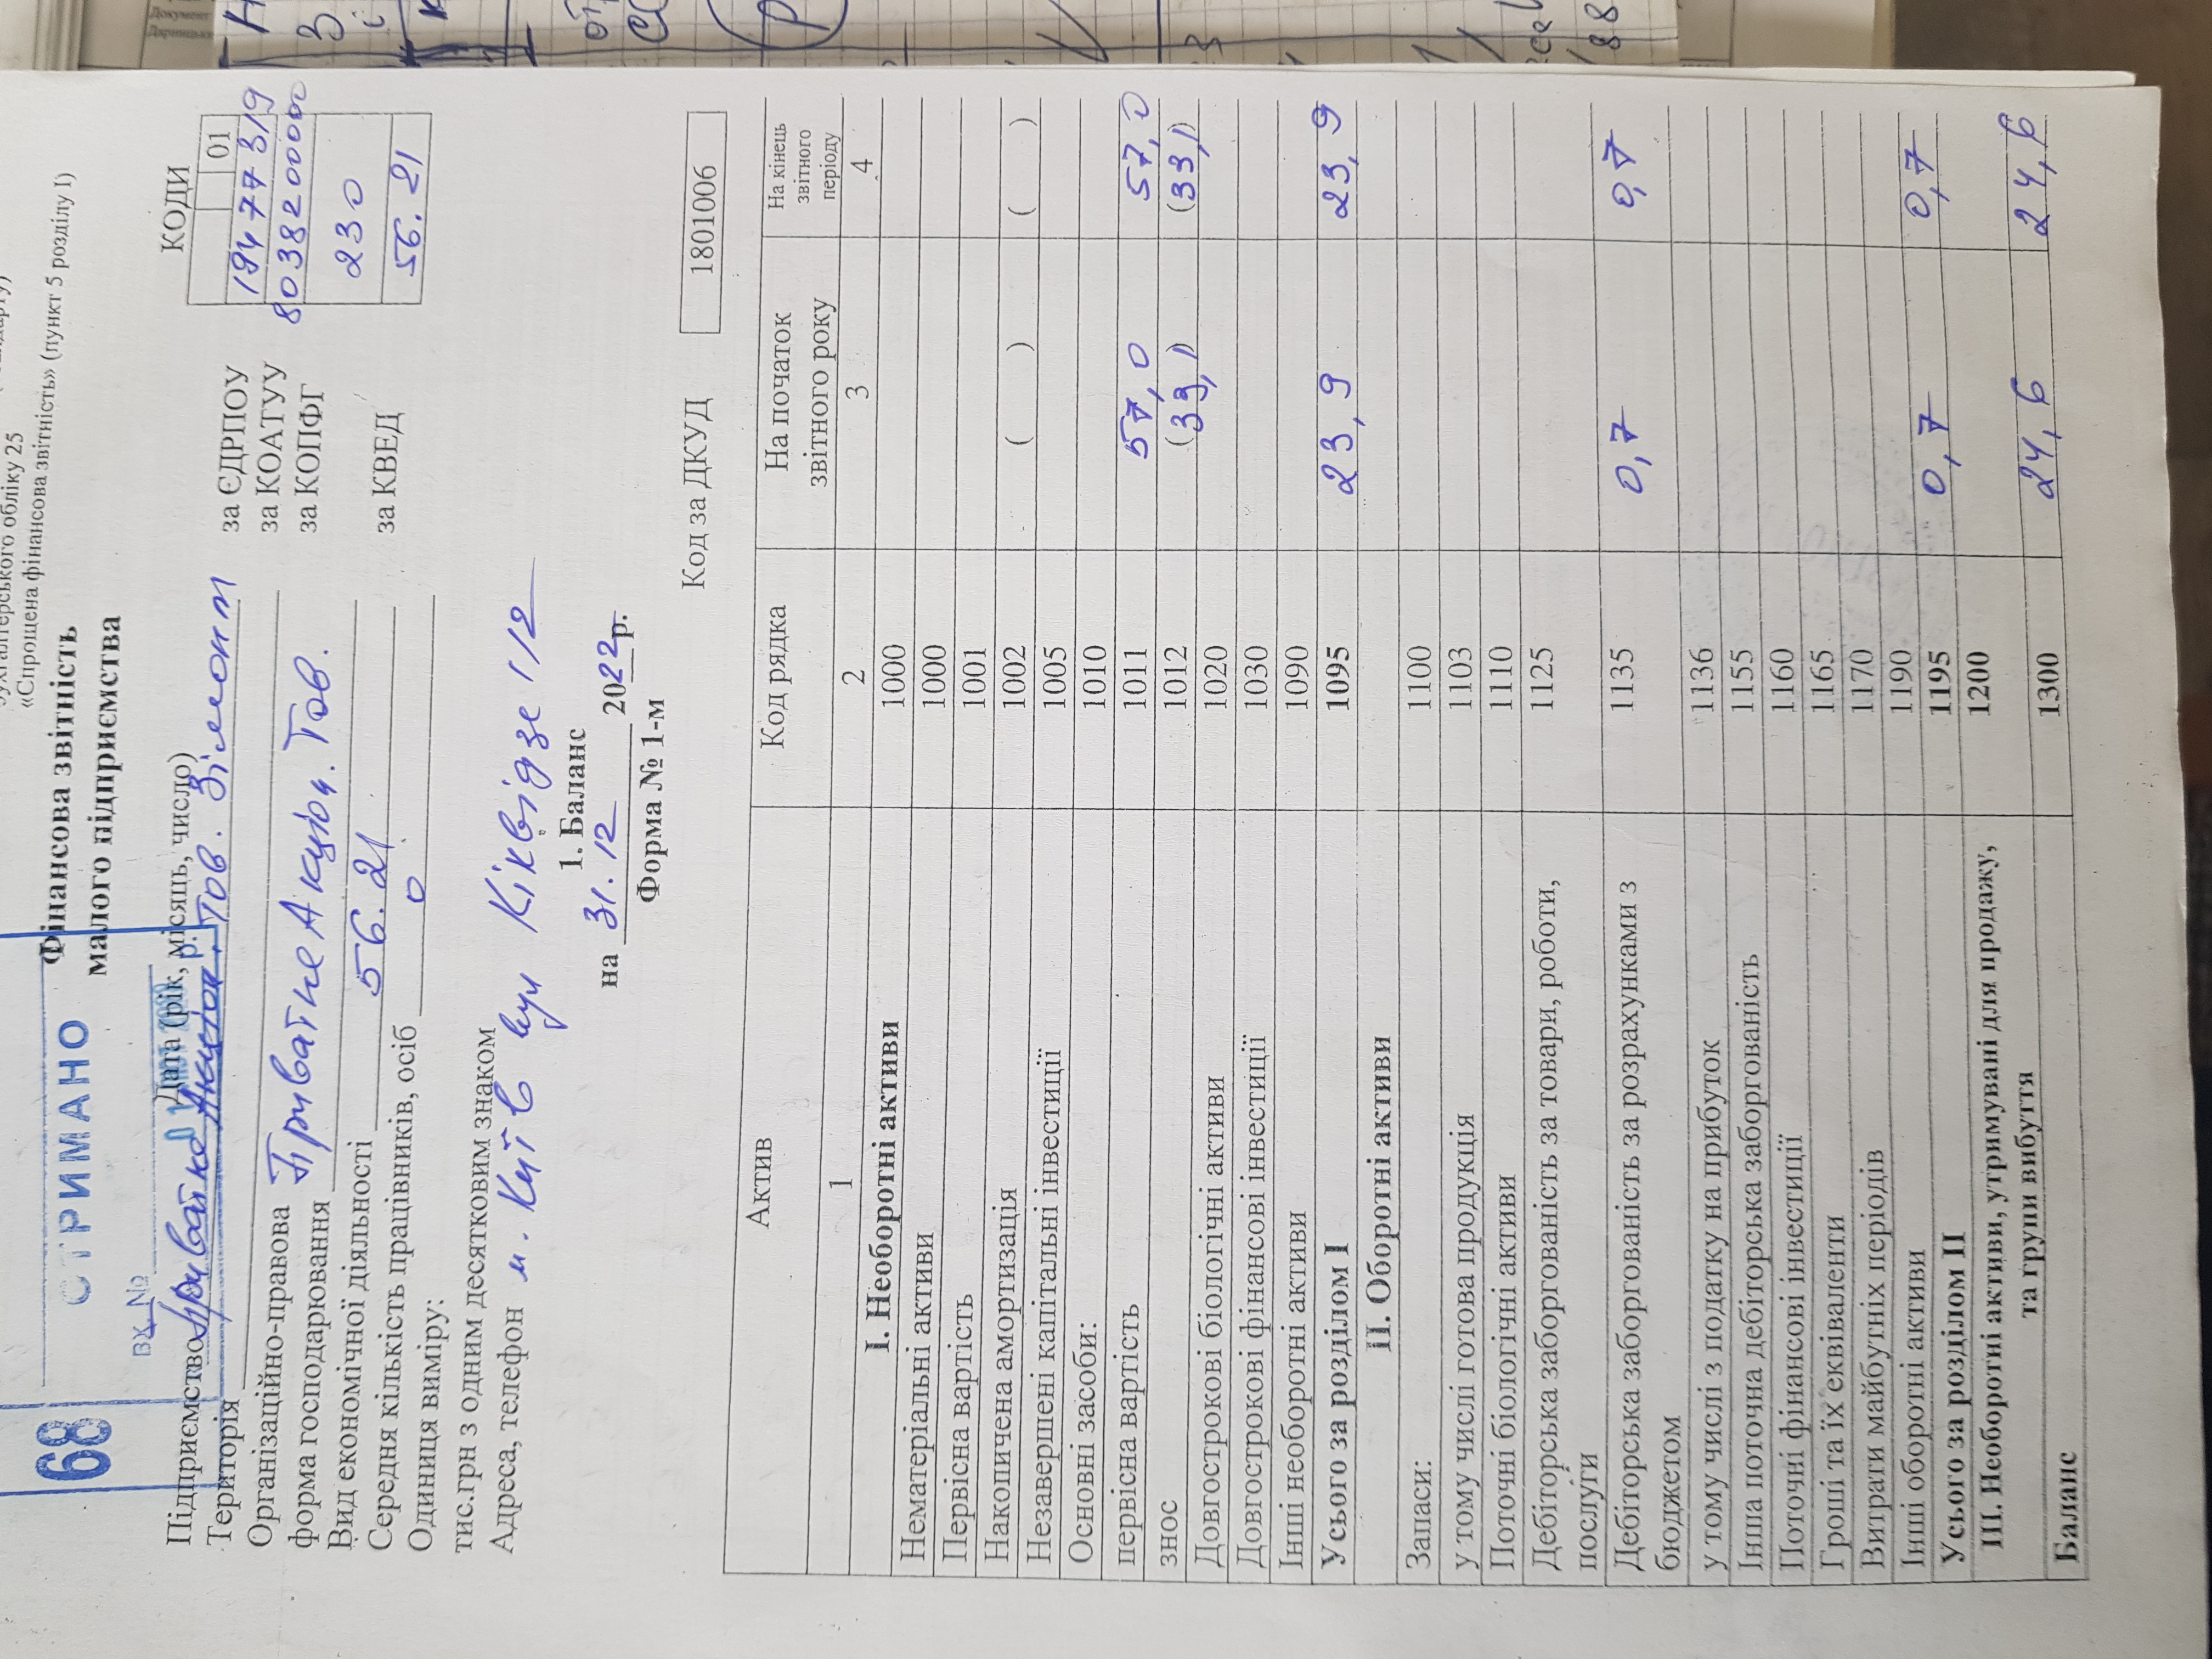 бухгалтерського обліку 25
«Спрощена фінансова звітність» (пункт 5 розділу I)
68
ОТРИМАНО
ВХ №
Фінансова звітність
малого підприємства
КОДИ
Дата (рік, місяць, число)
01
Підприємство Приватне Акціон. Тов. Зімонт за ЄДРПОУ 19477319
Територія за КОАТУУ 8038200000
Організаційно-правова за КОПФГ 230
форма господарювання Приватне Акціон. Тов.
Вид економічної діяльності 56.21 за КВЕД 56.21
Середня кількість працівників, осіб 0
Одиниця виміру:
тис.грн з одним десятковим знаком
Адреса, телефон м. Київ вул Кіквідзе 1/2
1. Баланс
на 31.12 2022р.
Форма № 1-м
Код за ДКУД 1801006
Актив Код рядка На початок звітного року На кінець звітного періоду
1 2 3 4
I. Необоротні активи 1000
Нематеріальні активи 1000
Первісна вартість 1001
Накопичена амортизація 1002 ( ) ( )
Незавершені капітальні інвестиції 1005
Основні засоби: 1010
первісна вартість 1011 57,0 57,0
знос 1012 (33,1) (33,1)
Довгострокові біологічні активи 1020
Довгострокові фінансові інвестиції 1030
Інші необоротні активи 1090
Усього за розділом I 1095 23,9 23,9
II. Оборотні активи
Запаси: 1100
у тому числі готова продукція 1103
Поточні біологічні активи 1110
Дебіторська заборгованість за товари, роботи, 1125
послуги
Дебіторська заборгованість за розрахунками з 1135 0,7 0,7
бюджетом
у тому числі з податку на прибуток 1136
Інша поточна дебіторська заборгованість 1155
Поточні фінансові інвестиції 1160
Гроші та їх еквіваленти 1165
Витрати майбутніх періодів 1170
Інші оборотні активи 1190
Усього за розділом II 1195 0,7 0,7
III. Необоротні активи, утримувані для продажу, 1200
та групи вибуття
Баланс 1300 24,6 24,6